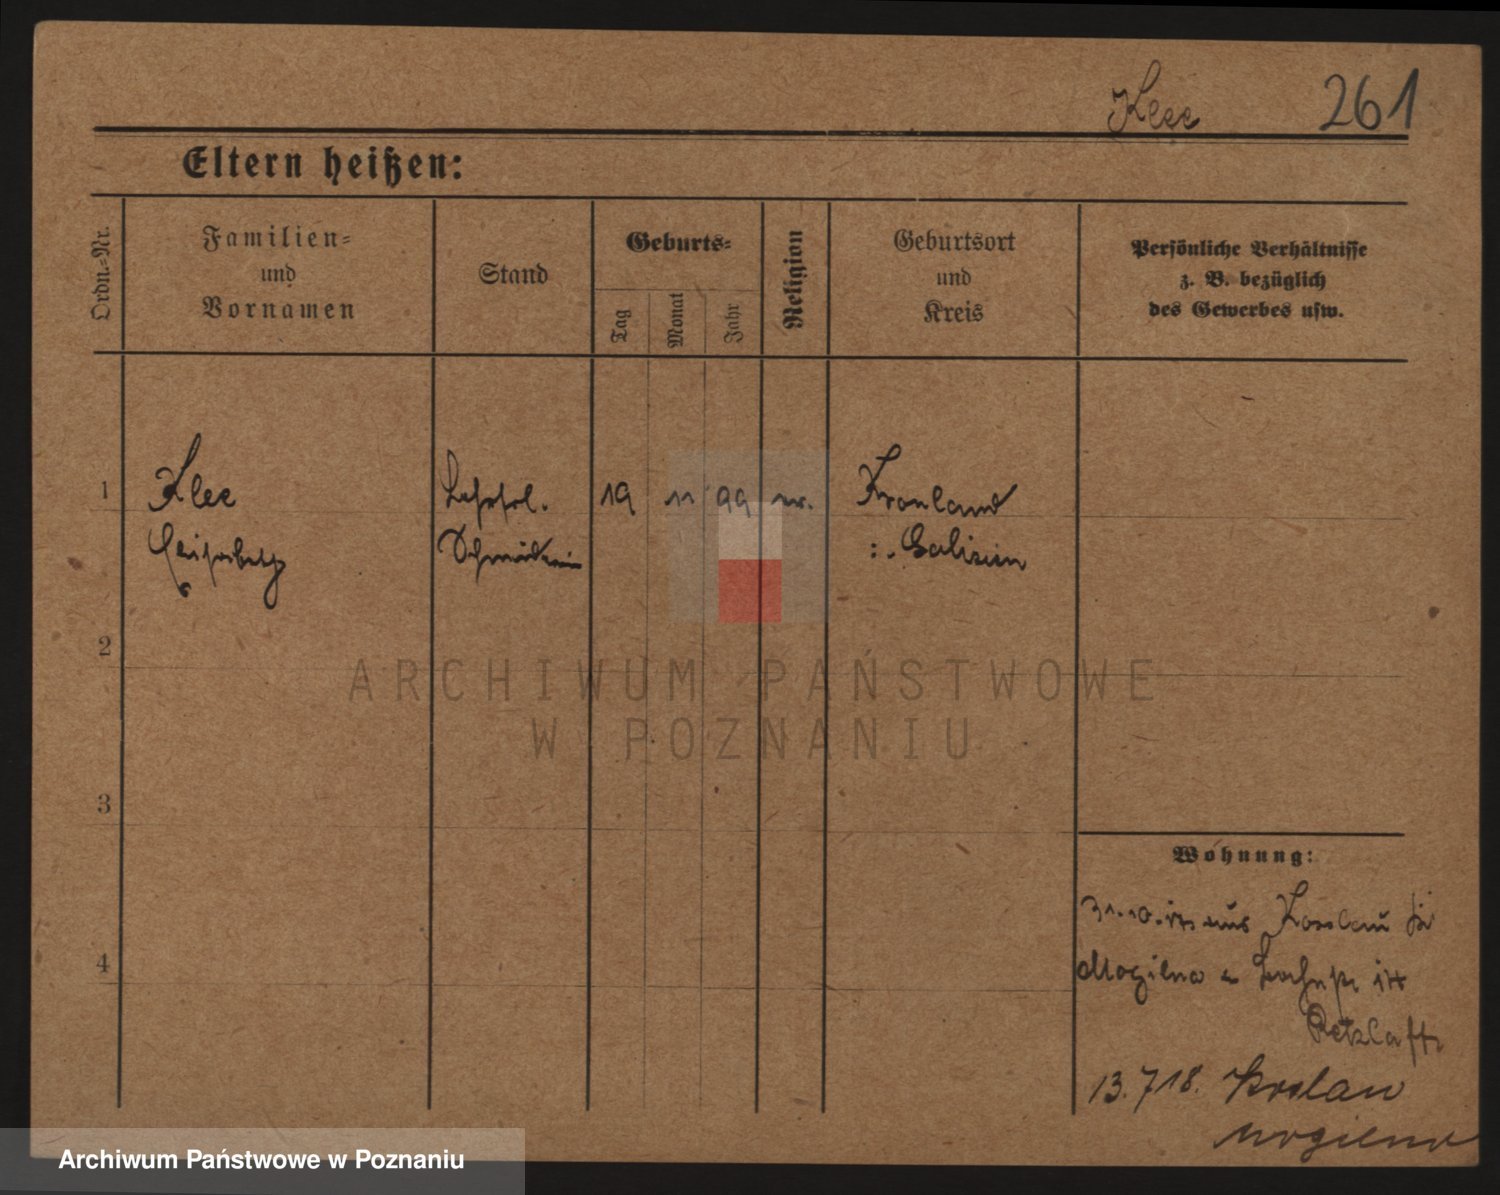 Klee 261
Eltern heißen:
Ordn.-Nr.
Familien-
und
Vornamen
Stand
Geburts-
Tag
Monat
Jahr
Religion
Geburtsort
und
Kreis
Persönliche Verhältnisse
z. B. bezüglich
des Gewerbes usw.
1
Klee
Elisabeth
19 11 99
Kronland
Galizien
2
3
4
Wohnung:
31.10. aus
Mogilno
Retzlaff
13.7 18. Koslau
Mogilno
ARCHIWUM PAŃSTWOWE
W POZNANIU
Archiwum Państwowe w Poznaniu